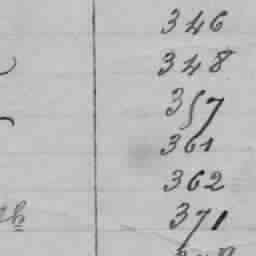 346
348
357
361
362
371